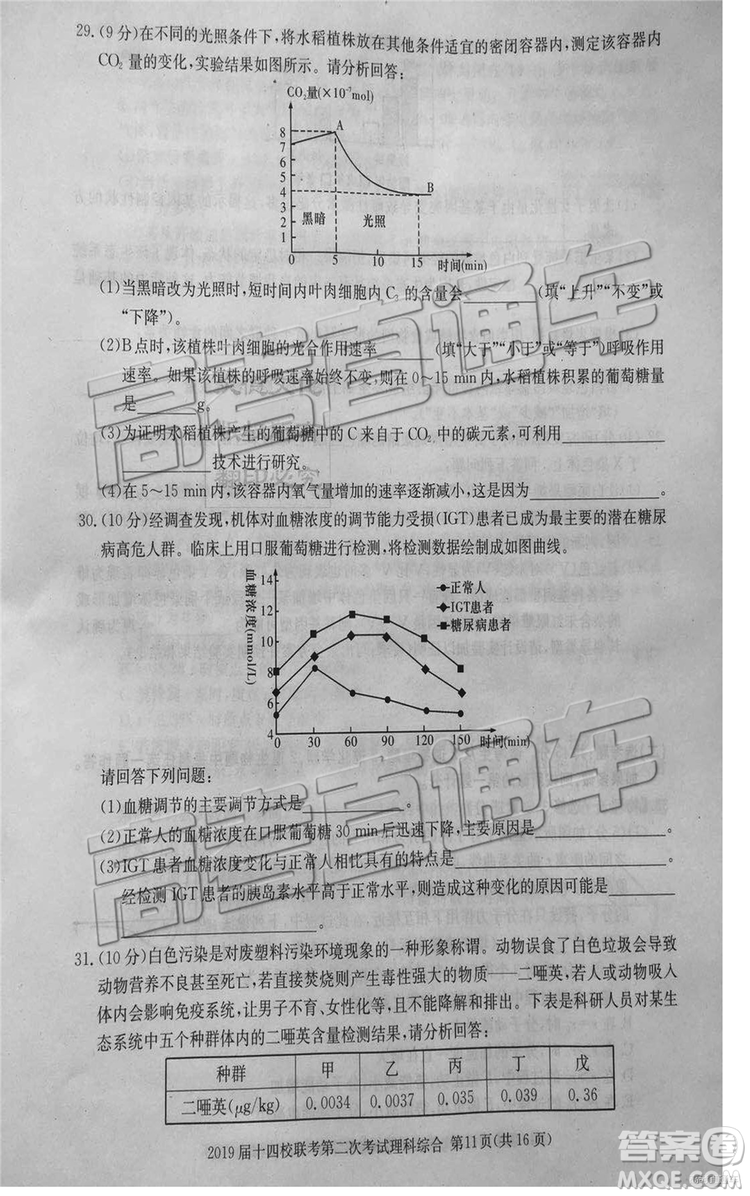 29.(9分)在不同的光照条件下,将水稻植株放在其他条件适宜的密闭容器内,测定该容器内
CO₂量的变化,实验结果如图所示。请分析回答:
CO₂量(×10⁻⁷mol)
8
7
6
5
4
3
2
1
0
A
B
黑暗
光照
5
10
15
时间(min)
(1)当黑暗改为光照时,短时间内叶肉细胞内C₃的含量会________(填“上升”“不变”或
“下降”)。
(2)B点时,该植株叶肉细胞的光合作用速率________(填“大于”“小于”或“等于”)呼吸作用
速率。如果该植株的呼吸速率始终不变,则在0～15 min内,水稻植株积累的葡萄糖量
是________g。
(3)为证明水稻植株产生的葡萄糖中的C来自于CO₂中的碳元素,可利用________
________技术进行研究。
(4)在5～15 min内,该容器内氧气量增加的速率逐渐减小,这是因为________。
30.(10分)经调查发现,机体对血糖浓度的调节能力受损(IGT)患者已成为最主要的潜在糖尿
病高危人群。临床上用口服葡萄糖进行检测,将检测数据绘制成如图曲线。
血糖浓度(mmol/L)
14
12
10
8
6
4
0
30
60
90
120
150
时间(min)
正常人
IGT患者
糖尿病患者
请回答下列问题:
(1)血糖调节的主要调节方式是________。
(2)正常人的血糖浓度在口服葡萄糖30 min后迅速下降,主要原因是________。
(3)IGT患者血糖浓度变化与正常人相比具有的特点是________。
经检测IGT患者的胰岛素水平高于正常水平,则造成这种变化的原因可能是
________。
31.(10分)白色污染是对废塑料污染环境现象的一种形象称谓。动物误食了白色垃圾会导致
动物营养不良甚至死亡,若直接焚烧则产生毒性强大的物质——二噁英,若人或动物摄入
体内会影响免疫系统,让男子不育、女性化等,且不能降解和排出。下表是科研人员对某生
态系统中五个种群体内的二噁英含量检测结果,请分析回答:
种群 甲 乙 丙 丁 戊
二噁英(μg/kg) 0.0034 0.0037 0.035 0.039 0.36
2019届十四校联考第二次考试理科综合 第11页(共16页)
高考直通车
高考直通车
翻印必究
答案圈
MXQE.COM